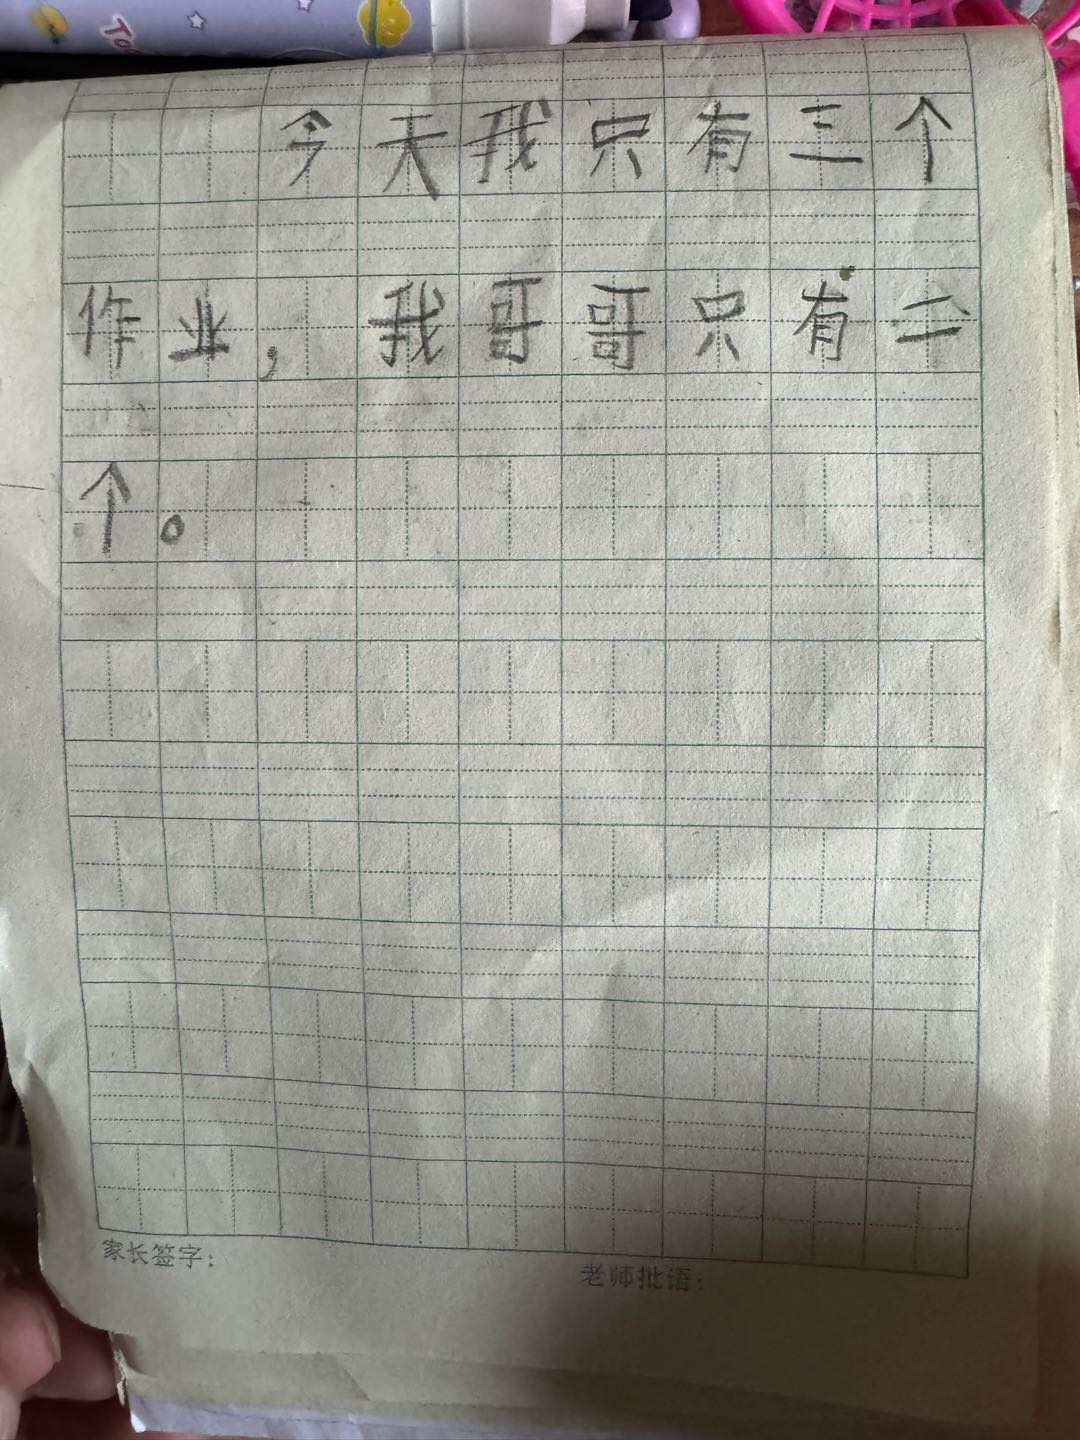 To
今天我只有三个
作业，我哥哥只有二
个。
家长签字：
老师批语：